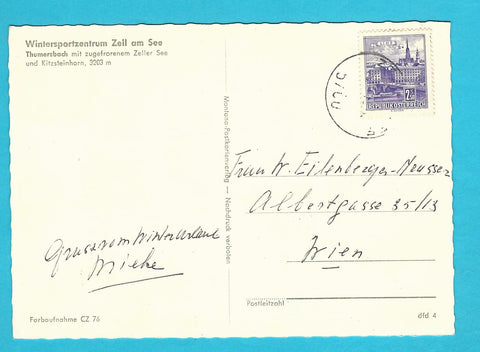 Wintersportzentrum Zell am See
Thumersbach mit zugefrorenem Zeller See
und Kitzsteinhorn, 3203 m
Gruss vom Winterurlaub
Farbaufnahme CZ 76
Montana-Postkartenverlag — Nachdruck verboten
REPUBLIK ÖSTERREICH
Albertgasse 35/13
Wien
Postleitzahl
dfd 4